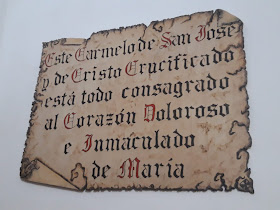 Este Carmelo de San José
y de Cristo Crucificado
está todo consagrado
al Corazón Doloroso
e Inmaculado
de María